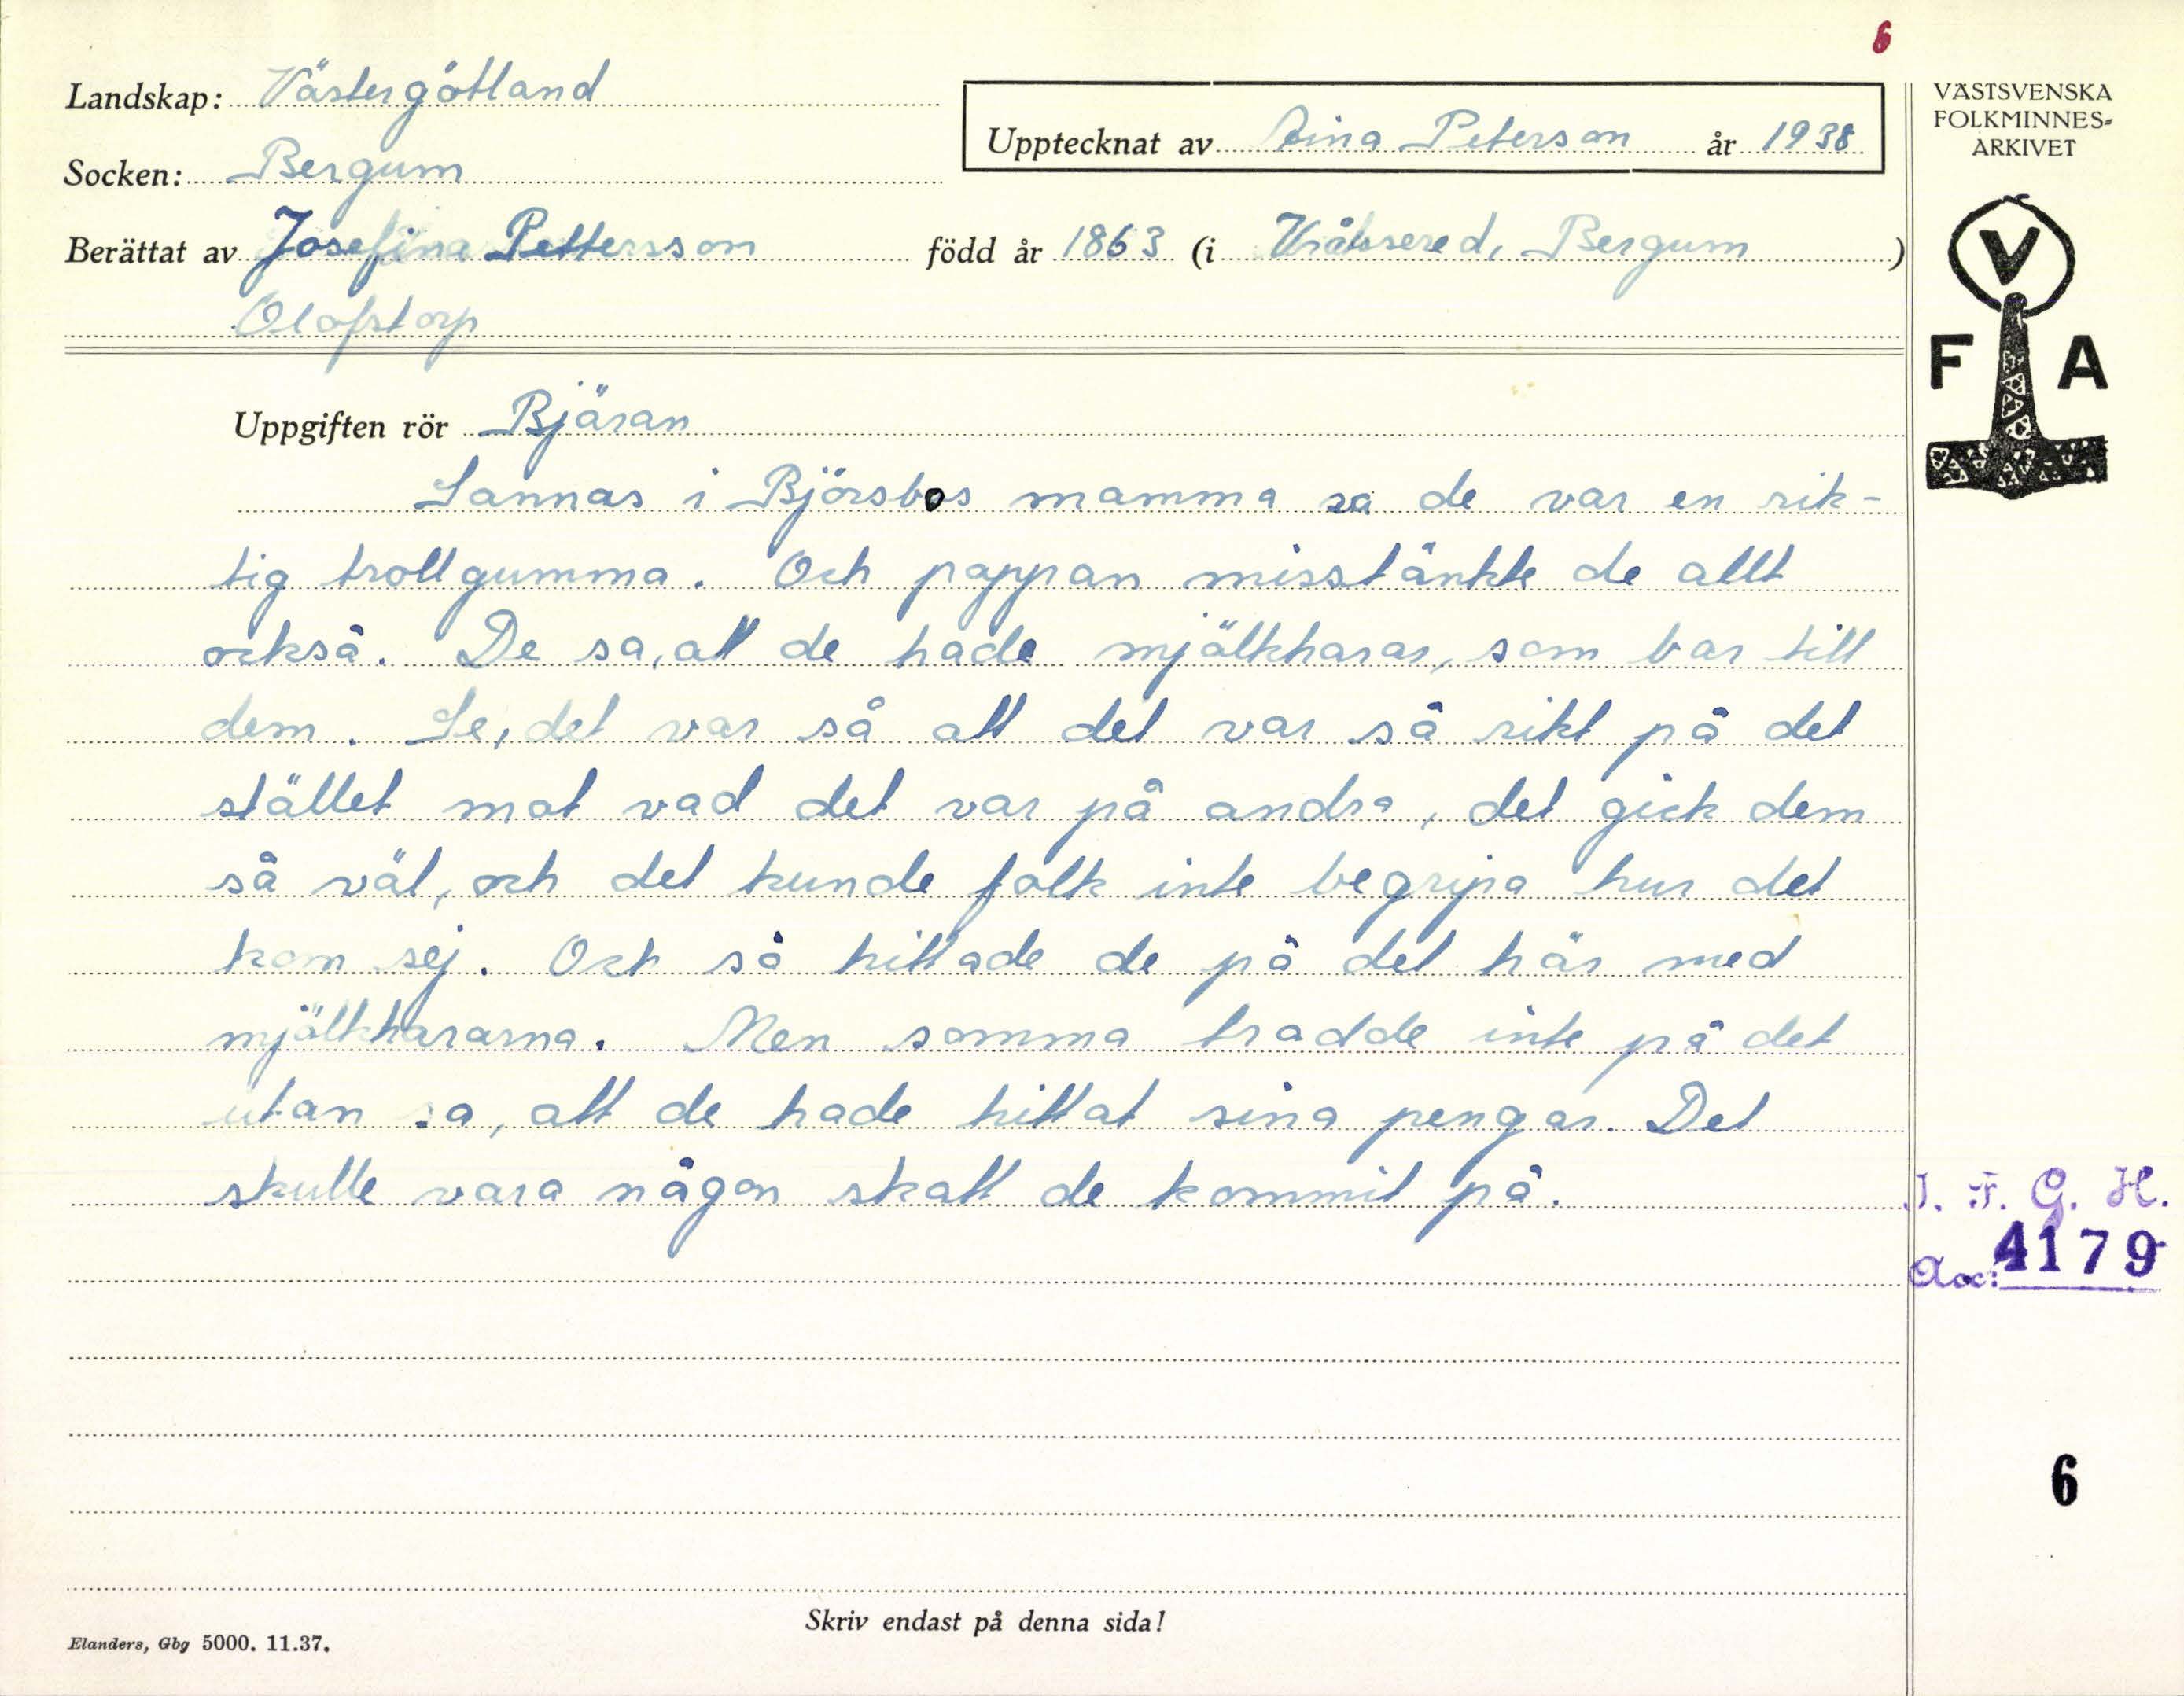 6
Landskap: Västergötland
Socken: Bergum
Upptecknat av Aina Peterson år 1938
Berättat av Josefina Pettersson född år 1863 (i Bergum)
Olofstorp
VÄSTSVENSKA
FOLKMINNES-
ARKIVET
V
F A
Uppgiften rör Bjäran
Sannas i Björsbos mamma sa de var en rik-
tig trollgumma. Och pappan misstänkte de allt
också. De sa, att de hade mjölkharar, som bar till
dem. Se, det var så att det var så rikt på det
stället mot vad det var på andra, det gick dem
så väl, och det kunde folk inte begripa hur det
kom sej. Och så hittade de på det här med
mjölkhararna. Men somma trodde inte på det
utan sa, att de hade hittat sina pengar. Det
skulle vara någon skatt de kommit på.
I. F. G. H.
Acc: 4179
6
Skriv endast på denna sida!
Elanders, Gbg 5000. 11.37.